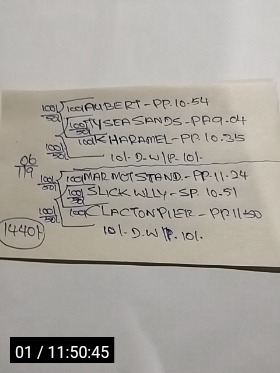 100/50 100/ AUBERT - PP. 10.54
100/50 TYSEASANDS - PP 9.04
100/50 100/ KHARAMEL - PP 10.35
10/- D.W/P. 10/.
06/79
100/50 100/ MARMOTSTAND - PP. 11.24
100/50 SLICK WLLY - SP. 10.51
100/50 100/ CLACTONPIER - PP. 11-50
10/- D.W/P. 10/.
1440/-
01 / 11:50:45